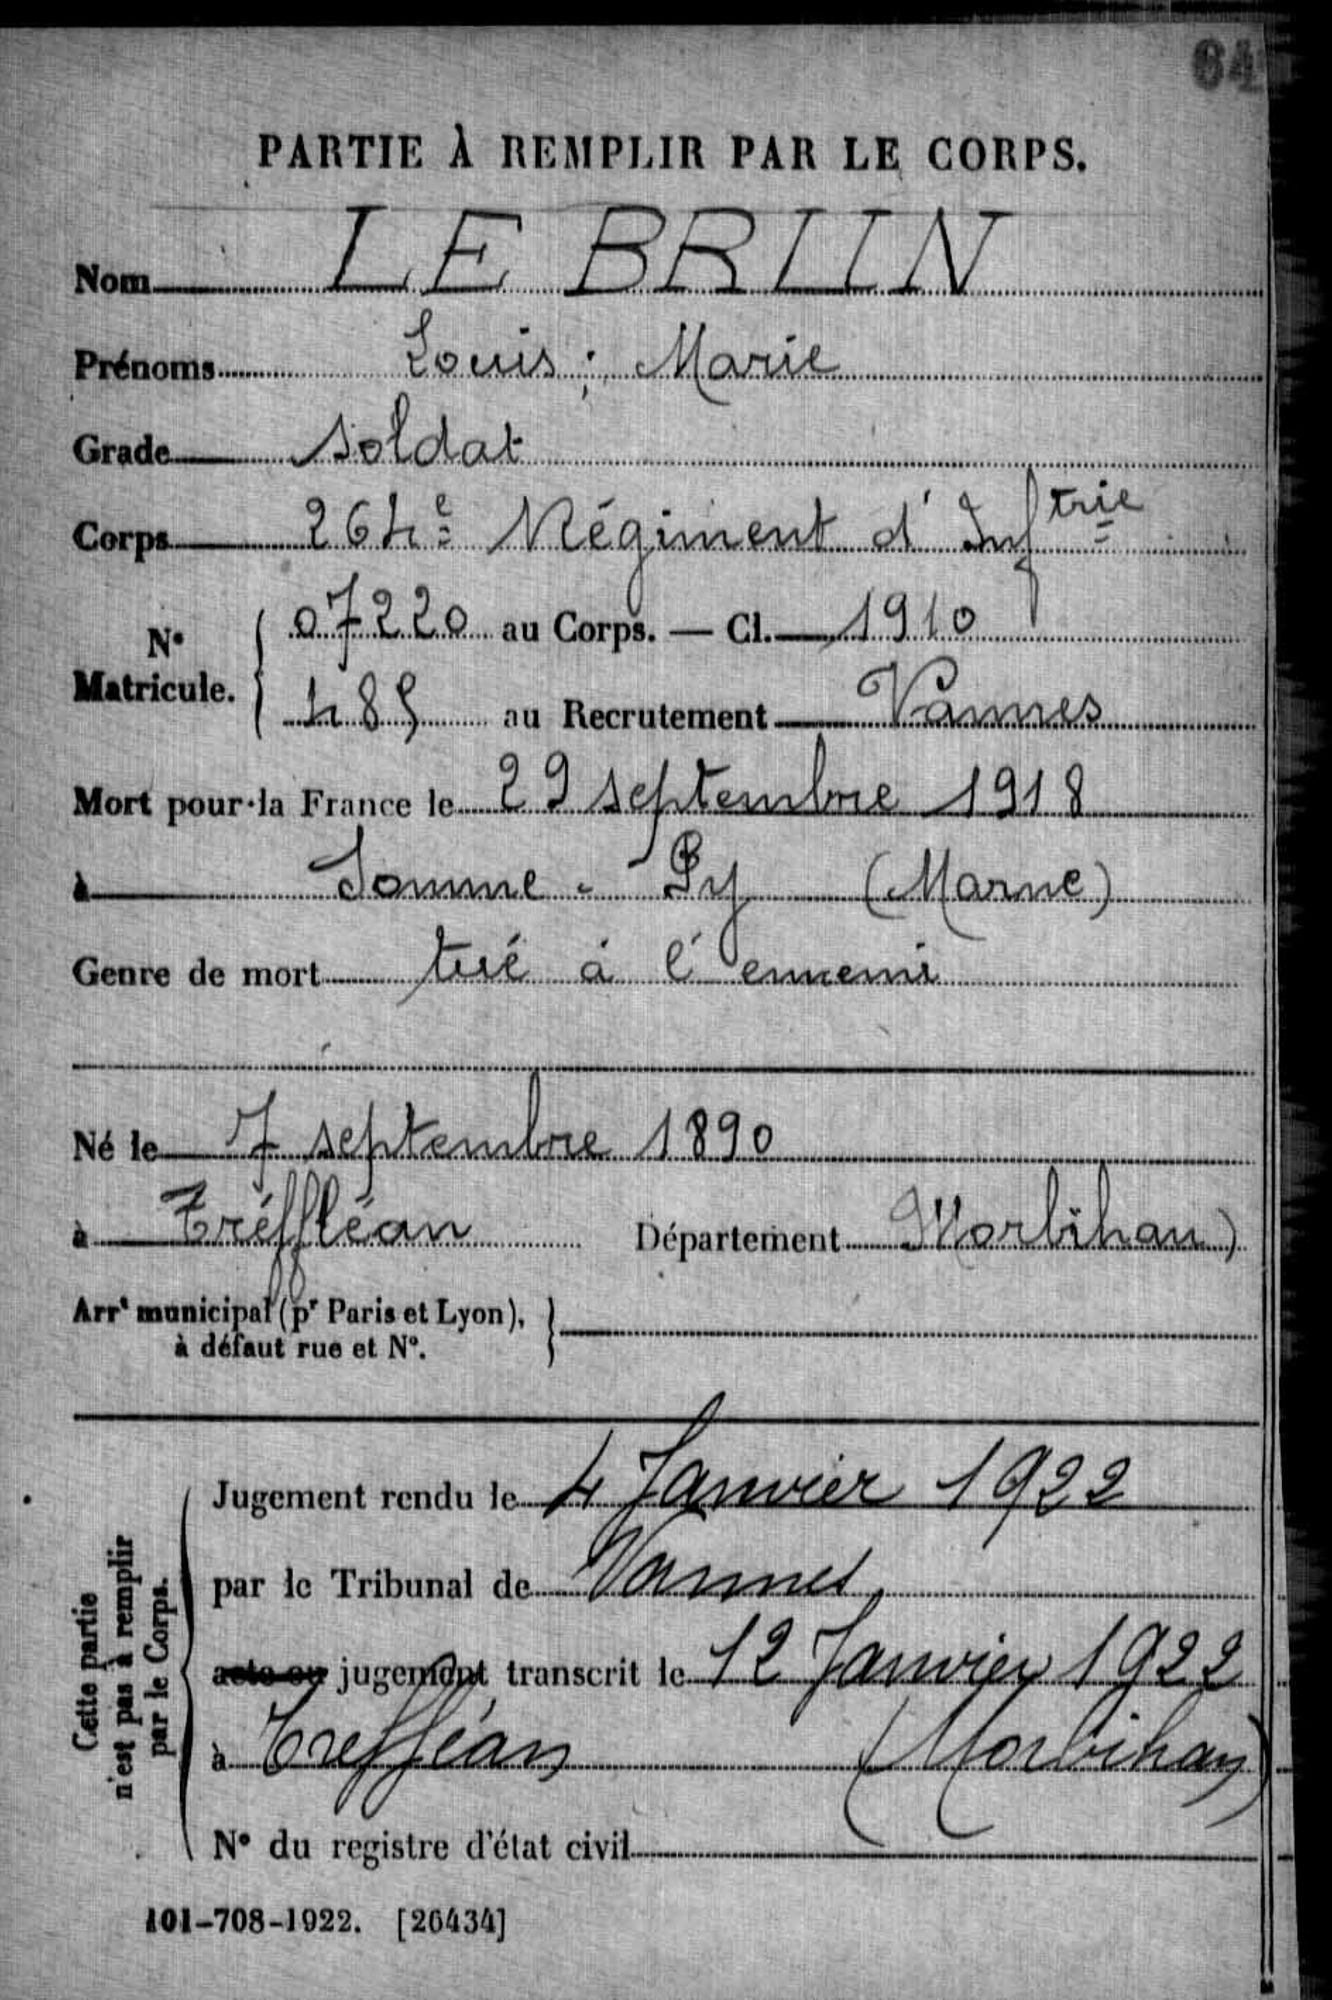 64
PARTIE À REMPLIR PAR LE CORPS.
Nom LE BRUN
Prénoms Louis ; Marie
Grade Soldat
Corps 264e Régiment d'Inftrie
N° Matricule. { 07220 au Corps. — Cl. 1910
485 au Recrutement Vannes
Mort pour la France le 29 septembre 1918
à Somme-Py (Marne)
Genre de mort tué à l'ennemi
Né le 7 septembre 1890
à Tréffléan Département Morbihan)
Arrt municipal (pr Paris et Lyon),
à défaut rue et N°.
Cette partie
n'est pas à remplir
par le Corps.
Jugement rendu le 4 Janvier 1922
par le Tribunal de Vannes
acte ou jugement transcrit le 12 Janvier 1922
à Treffléan (Morbihan)
N° du registre d'état civil
101-708-1922. [26434]